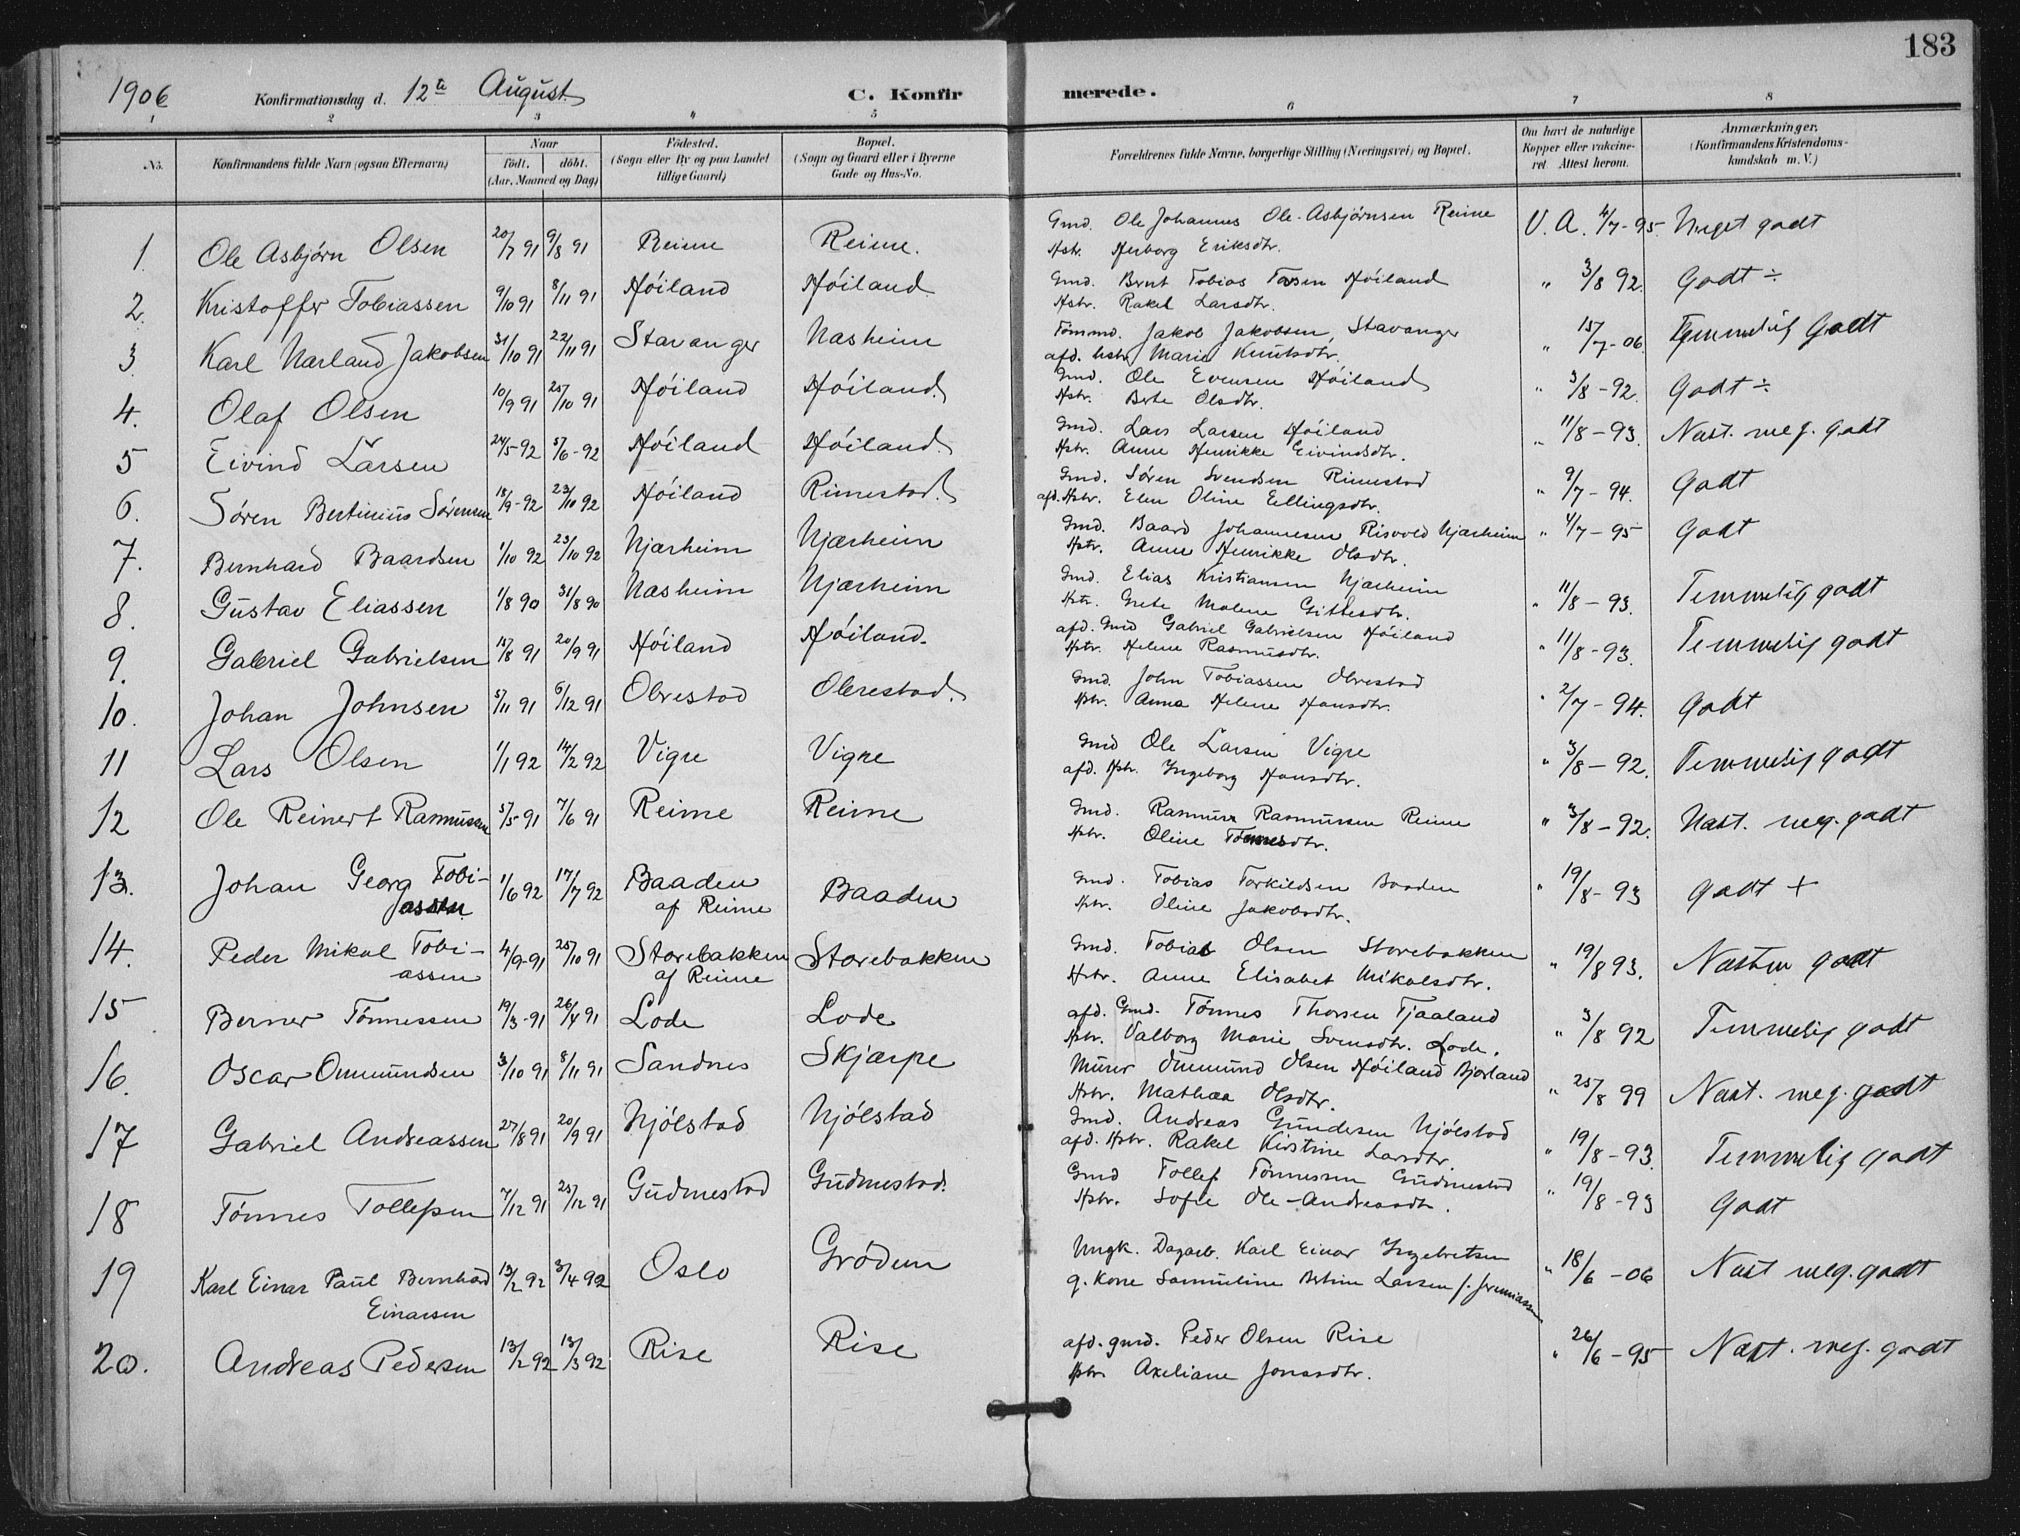 183
1906 Konfirmationsdag d. 12te August C. Konfirmerede.
1 2 3 4 5 6 7 8
No. Konfirmandens fulde Navn (ogsaa Efternavn) Naar födt. döbt. (Aar, Maaned og Dag) Födested. (Sogn eller By og paa Landet tillige Gaard) Bopæl. (Sogn og Gaard eller i Byerne Gade og Hus-No. Forældrenes fulde Navne, borgerlige Stilling (Næringsvei) og Bopæl. Om havt de naturlige Kopper eller vakcineret. Attest herom. Anmærkninger. (Konfirmandens Kristendomskundskab m. V.)
1. Ole Asbjørn Olsen 20/7 91 9/8 91 Reime Reime. Gmd. Ole Johannes Ole-Asbjørnsen Reime V. A. 4/7-95. Meget godt
Hstr. Herborg Eriksdtr.
2. Kristoffer Tobiassen 9/10 91 8/11 91 Høiland Høiland Gmd. Bernt Tobias Høiland " 3/8 92. Godt ÷
Hstr. Rakel Larsdtr.
3 Karl Narland Jakobsen 31/10 91 22/11 91 Stavanger Nasheim Tømmd. Jakob Jakobsen, Stavanger " 15/7-06 Temmelig Godt
afd. hstr. Marie Knutsdtr.
4. Olaf Olsen 10/9 91 25/10 91 Høiland Høiland. Gmd. Ole Evensen Høiland " 3/8-92. Godt ÷
Hstr. Berte Olsdtr.
5 Eivind Larsen 24/5-92 5/6-92 Høiland Høiland. Gmd. Lars Larsen Høiland " 11/8-93. Næst. meg. godt
Hstr. Anne Henrikke Eivindsdtr.
6. Sören Bertinius Sörensen 18/9-92 23/10 92 Høiland Rimestad. Gmd. Søren Svendsen Rimestad " 9/7-94. Godt
afd. Hstr. Elen Oline Ellingsdtr.
7. Bernhard Baardsen 1/10 92 23/10 92 Njærheim Njærheim Gmd. Baard Johannesen Risvold Njærheim " 4/7-95 Godt
Hstr. Anne Henrikke Olsdtr.
8. Gustav Eliassen 1/8 90 31/8 90 Nasheim Njærheim Gmd. Elias Kristiansen Njærheim " 11/8-93. Temmelig godt
Hstr. Grete Malene Gitlesdtr.
9. Gabriel Gabrielsen 15/8 91 20/9 91 Høiland Høiland. afd. Gmd Gabriel Gabrielsen Høiland " 11/8-93. Temmelig godt
Hstr. Helene Rasmusdtr.
10. Johan Johnsen 5/11 91 6/12 91 Obrestad Obrestad. Gmd. John Tobiassen Obrestad " 2/7-94. Godt
Hstr. Anna Helene Hansdtr.
11 Lars Olsen 1/1 92 14/2 92 Vigre Vigre Gmd Ole Larsen Vigre " 3/8-92. Temmelig godt
afd. Hstr. Ingeborg Hansdtr.
12 Ole Reinert Rasmussen 5/5-91 7/6 91 Reime Reime Gmd. Rasmus Rasmussen Reime " 3/8-92. Næst. meg. godt
Hstr. Oline Tønnesdtr.
13. Johan Georg Tobi- 1/6 92 17/7 92 Baaden Baaden Gmd. Tobias Torkildsen Baaden " 19/8-93 Godt +
assen af Reime Hstr. Oline Jakobsdtr.
14. Peder Mikal Tobi- 4/9-91 25/10 91 Storebakken Storebakken Gmd. Tobias Olsen Storebakken " 19/8 93. Næsten godt
assen af Reime Hstr. Anne Elisabet Mikalsdtr.
15 Berner Tönnessen 19/3-91 26/4 91 Lode Lode afd. Gmd. Tönnes Thorsen Tjaaland " 3/8 92 Temmelig godt
Hstr. Valborg Marie Svensdtr. Lode.
16. Oscar Ommundsen 3/10 91 8/11 91 Sandnes Skjærpe Murer Ommund Olsen Høiland Bjorland " 25/8 99 Næst. meg. godt
Hstr. Mathea Olsdtr.
17 Gabriel Andreassen 27/8 91 20/9 91 Njölstad Njölstad Gmd. Andreas Gundersen Njölstad " 19/8-93. Temmelig godt
afd. Hstr. Rakel Kirstine Larsdtr.
18 Tönnes Tollefsen 7/12 91 25/12 91 Gudmestad Gudmestad. Gmd Tollef Tönnessen Gudmestad " 19/8-93 Godt
Hstr. Sofie Ole-Andreasdtr.
19 Karl Einar Paul Bernhard 13/2 92 3/4 92 Oslo Grödem Ungk. Dagarb. Karl Einar Ingebretsen " 18/6-06 Næst meg. godt
Einarsen g. Kone Samueline Bertine Larsen f. Jeremiassen
20. Andreas Pedersen 13/2 92 13/3 92 Rise Rise afd. gmd. Peder Olsen Rise " 26/6-95 Næst. meg. godt
Hstr. Axeliane Jonasdtr.